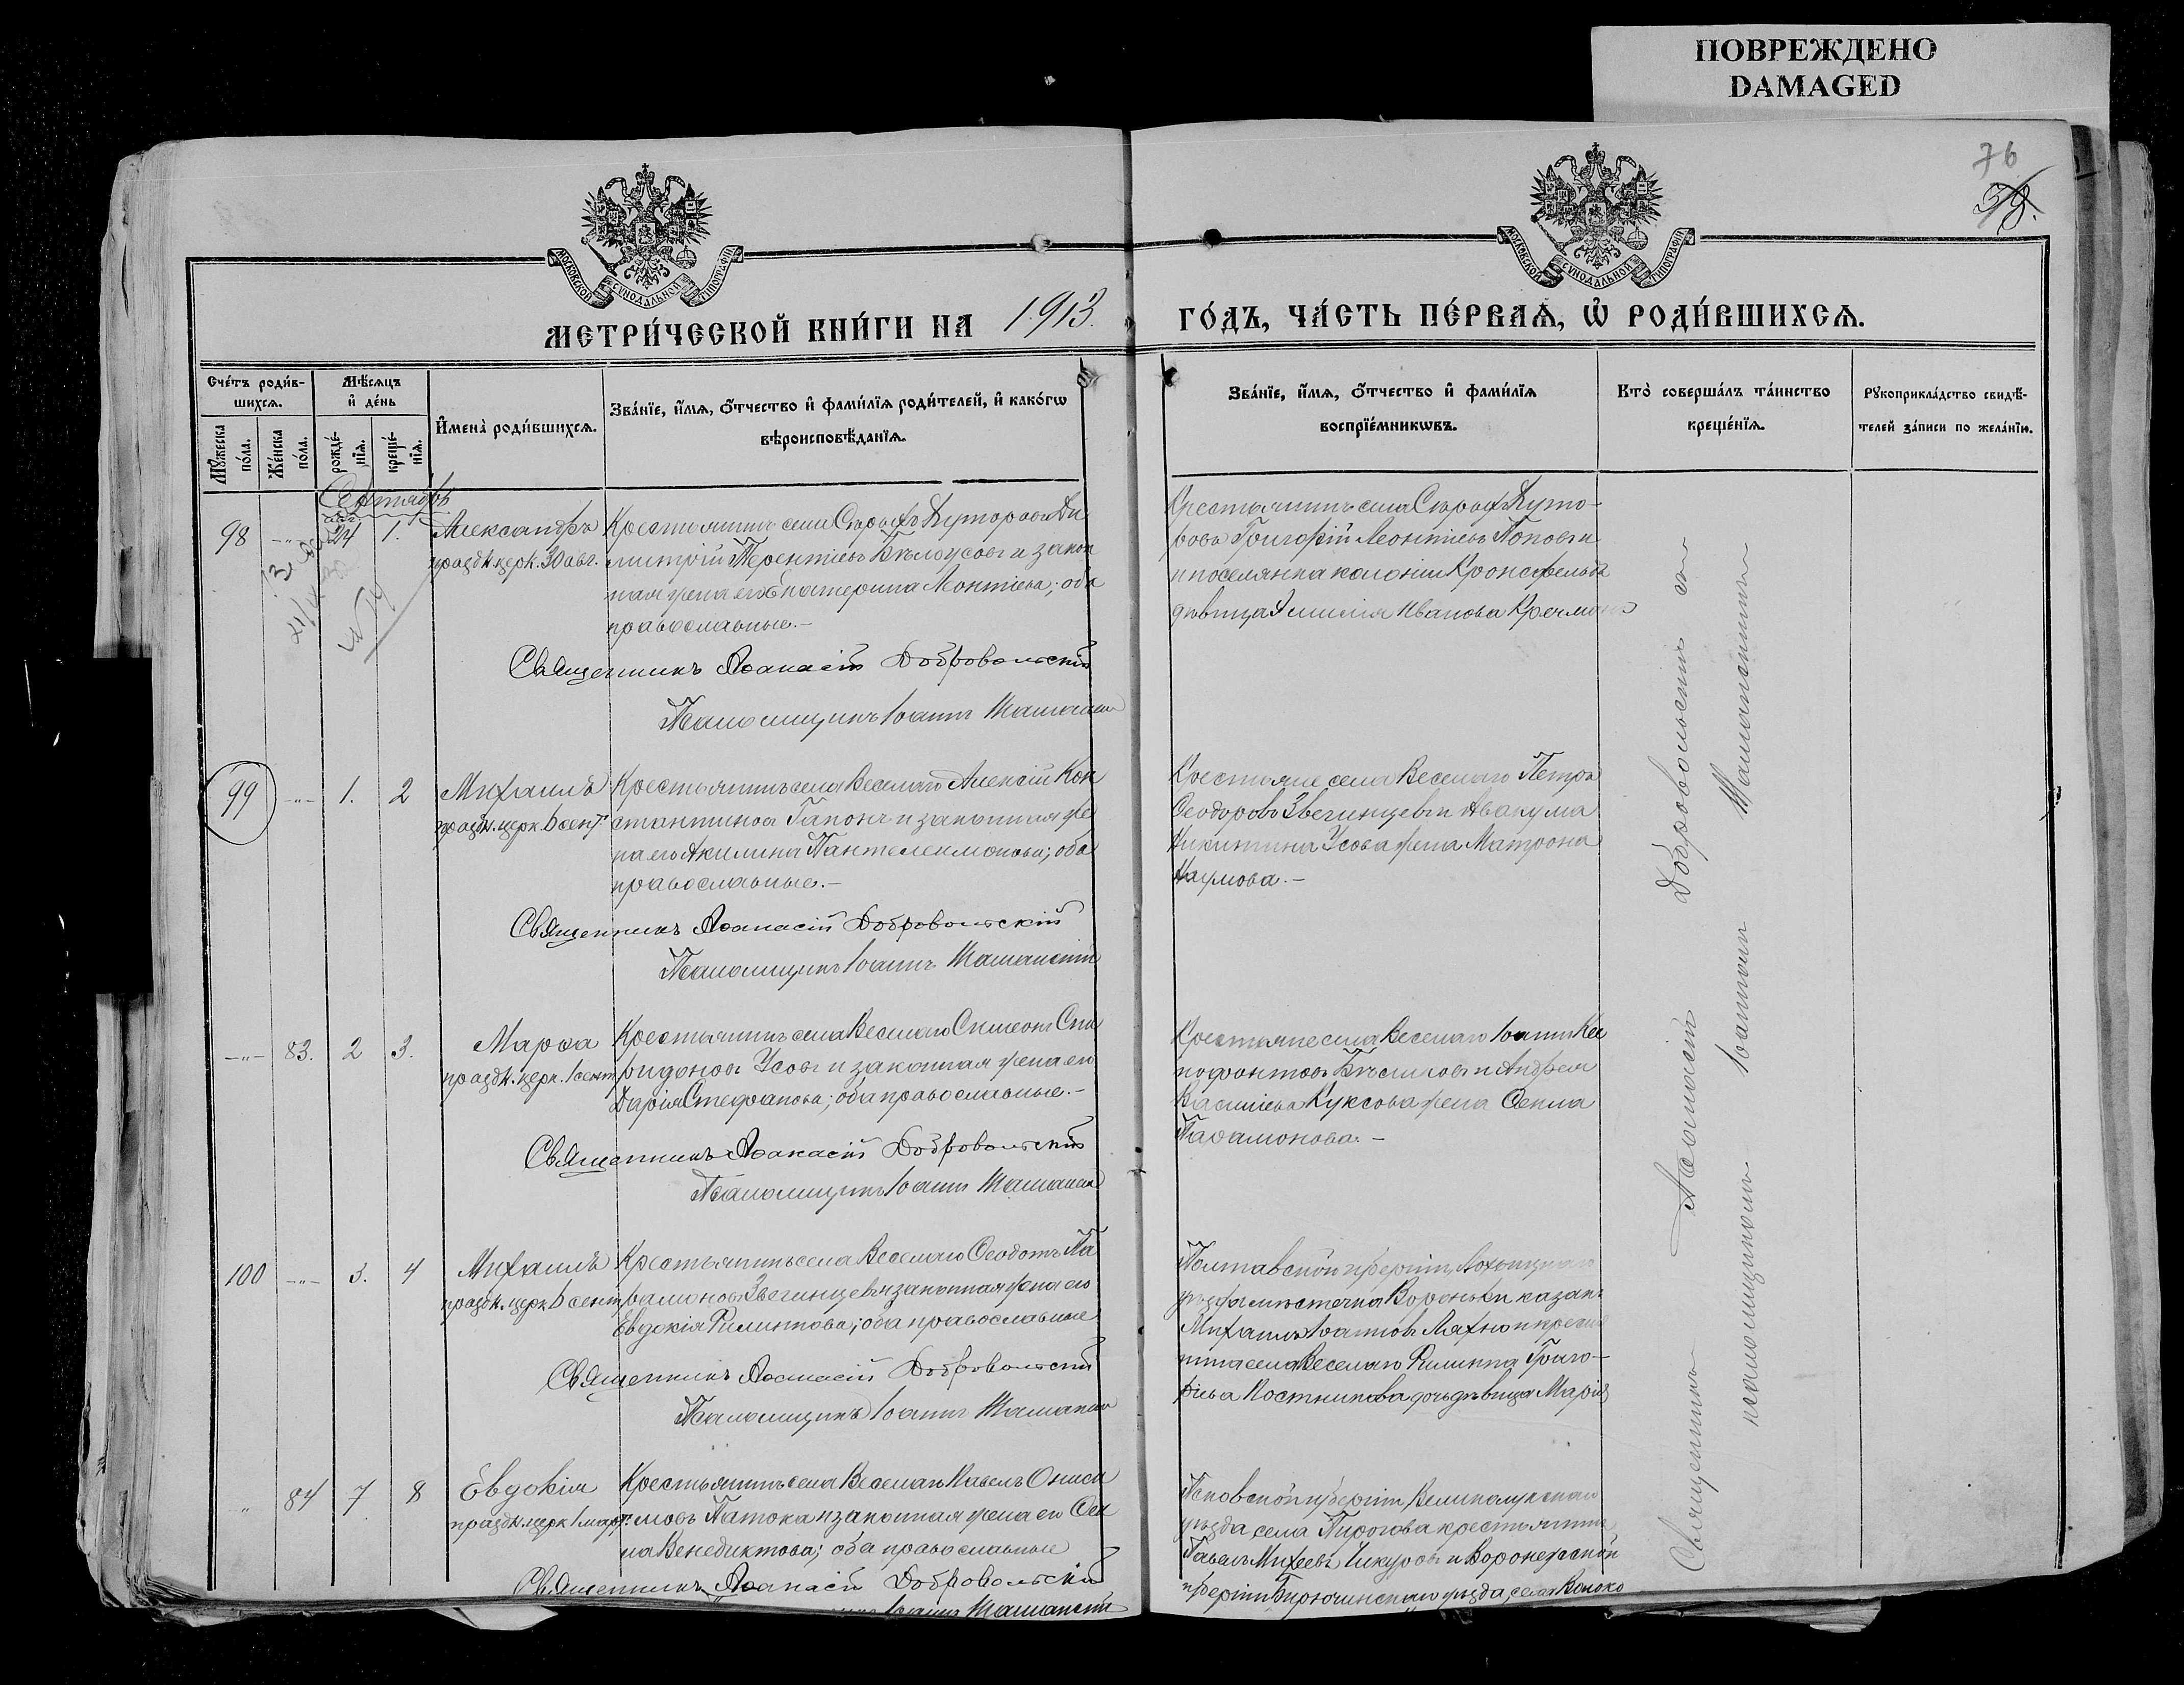 ПОВРЕЖДЕНО
DAMAGED
76
38.
МОСКОВСКОЙ СѴНОДАЛЬНОЙ ТИПОГРАФІИ
МОСКОВСКОЙ СѴНОДАЛЬНОЙ ТИПОГРАФІИ
МЕТРИ́ЧЕСКОЙ КНИ́ГИ НА 1913. ГО́ДЪ, ЧА́СТЬ ПЕ́РВАѦ, Ѡ҆ РОДИ́ВШИХСѦ.
Сче́тъ роди́в-
шихсѧ.
Мꙋ́жеска по́ла.
Же́нска по́ла.
Мѣ́сѧцъ
и҆ де́нь
рожде́-
нїѧ.
креще́-
нїѧ.
И҆мена̀ роди́вшихсѧ.
Зва́нїе, и҆́мѧ, ѻ҆́тчество и҆ фами́лїѧ роди́телей, и҆ како́гѡ
вѣроисповѣ́данїѧ.
Зва́нїе, и҆́мѧ, ѻ҆́тчество и҆ фами́лїѧ
воспрїе́мникѡвъ.
Кто̀ соверша́лъ та́инство
креще́нїѧ.
Рꙋкоприкла́дство свидѣ́-
телей за́писи по жела́нїю.
Сентябрь
98 -"- авг. 24 1. Александръ
праздн. церк. 30 авг.
Крестьянинъ села Старыхъ Буторовъ Ди
митрій Терентіевъ Бѣлоусовъ и закон
ная жена его Екатерина Леонтіева; оба
православные.-
Священникъ Аѳанасій Добровольскій
Псаломщикъ Іоаннъ
Крестьянинъ села Старыхъ Буто-
ровъ Григорій Леонтіевъ Поповъ и
поселянка колоніи Кронсфельдъ
дѣвица Эмилія Иванова
99 -"- 1. 2 Михаилъ
праздн. церк. 6 сент.
Крестьянинъ села Веселаго Алексій Кон
стантиновъ Гапонъ и законная же
на его Акилина Пантелеимонова; оба
православные.-
Священникъ Аѳанасій Добровольскій
Псаломщикъ Іоаннъ
Крестьяне села Веселаго Петръ
Ѳеодоровъ Звегинцевъ и Авакума
Никитина Усова жена Матрона
Наумова.-
-"- 83. 2 3. Марѳа
праздн. церк. 1 сент.
Крестьянинъ села Веселаго Симеонъ Спи
ридоновъ Усовъ и законная жена его
Дарія Стефанова; оба православные.-
Священникъ Аѳанасій Добровольскій
Псаломщикъ Іоаннъ
Крестьяне села Веселаго Іоаннъ Ксе
нофонтовъ и Андрея
Василіева Куксова жена Ѳекла
Парамонова.-
100 -"- 3. 4 Михаилъ
праздн. церк. 6 сент.
Крестьянинъ села Веселаго Ѳеодотъ Па
рамоновъ Звегинцевъ и законная жена его
Евдокія Филиппова; оба православные
Священникъ Аѳанасій Добровольскій
Псаломщикъ Іоаннъ
Полтавской губерніи, Лохвицкаго
уѣзда мѣстечка Вороньки казакъ
Михаилъ Іоанновъ Ляхно и кресть
нина села Веселаго Филиппа Григо-
ріева Постникова дочь дѣвица Марія
" 84 7 8 Евдокія
праздн. церк. 1 март.
Крестьянинъ села Веселаго Павелъ Ониси
мовъ Патока и законная жена его Ѳек
ла Венедиктова; оба православные
Священникъ Аѳанасій Добровольскій
Іоаннъ
Псковской губерніи Великолукскаго
уѣзда, села Пирогова крестьянинъ
Павелъ Михеевъ Чикуровъ и Воронежской
губерніи Бирюченскаго уѣзда, села
Священникъ Аѳанасій Добровольскій съ
псаломщикомъ Іоанномъ